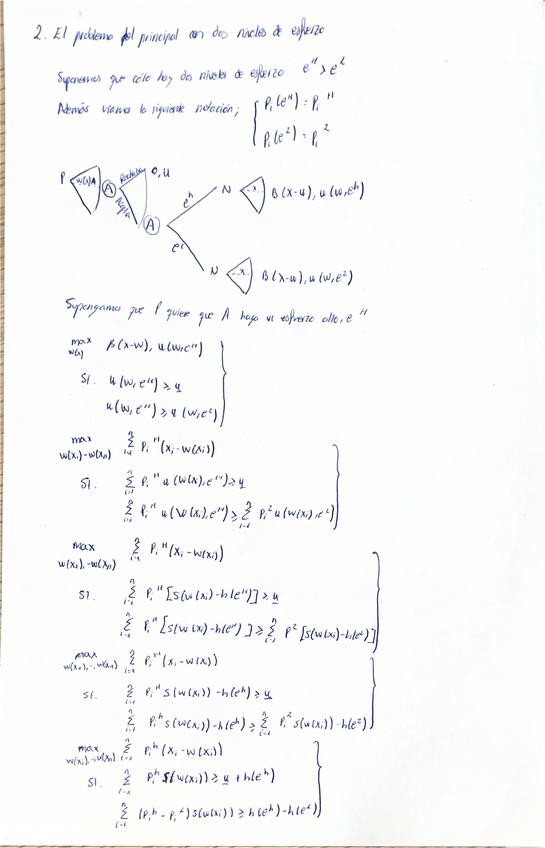 2. El problema del principal con dos niveles de esfuerzo
Suponemos que sólo hay dos niveles de esfuerzo e^H > e^L
Además usamos la siguiente notación; { P_i(e^H) = P_i^H
P_i(e^L) = P_i^L
P w(x) A A Rechaza O, u
Acepta A e^h N -x- B(x-w), u(w,e^h)
e^L N -x- B(x-w), u(w,e^L)
Supongamos que P quiere que A haga un esfuerzo alto, e^H
max w(x) B(x-w), u(w,e^H)
S1. u(w,e^H) ≥ u
u(w,e^H) ≥ u(w,e^L)
max w(x_1)-w(x_n) Σ_{i=1}^n P_i^H (x_i - w(x_i))
S1. Σ_{i=1}^n P_i^H u(w(x_i), e^H) ≥ u
Σ_{i=1}^n P_i^H u(w(x_i), e^H) ≥ Σ_{i=1}^n P_i^L u(w(x_i), e^L)
max w(x_1),-w(x_n) Σ_{i=1}^n P_i^H (x_i - w(x_i))
S1. Σ_{i=1}^n P_i^H [S(w(x_i) - h(e^H)] ≥ u
Σ_{i=1}^n P_i^H [S(w(x_i) - h(e^H)] ≥ Σ_{i=1}^n P^L [S(w(x_i) - h(e^L)]
max w(x_1),-,w(x_n) Σ_{i=1}^n P_i^H (x_i - w(x_i))
S1. Σ_{i=1}^n P_i^H S(w(x_i)) - h(e^h) ≥ u
Σ_{i=1}^n P_i^h S(w(x_i)) - h(e^h) ≥ Σ_{i=1}^n P_i^L S(w(x_i)) - h(e^L)
max w(x_1),-,w(x_n) Σ_{i=1}^n P_i^h (x_i - w(x_i))
S1. Σ_{i=1}^n P_i^h S(w(x_i)) ≥ u + h(e^h)
Σ_{i=1}^n (P_i^h - P_i^L) S(w(x_i)) ≥ h(e^h) - h(e^L)